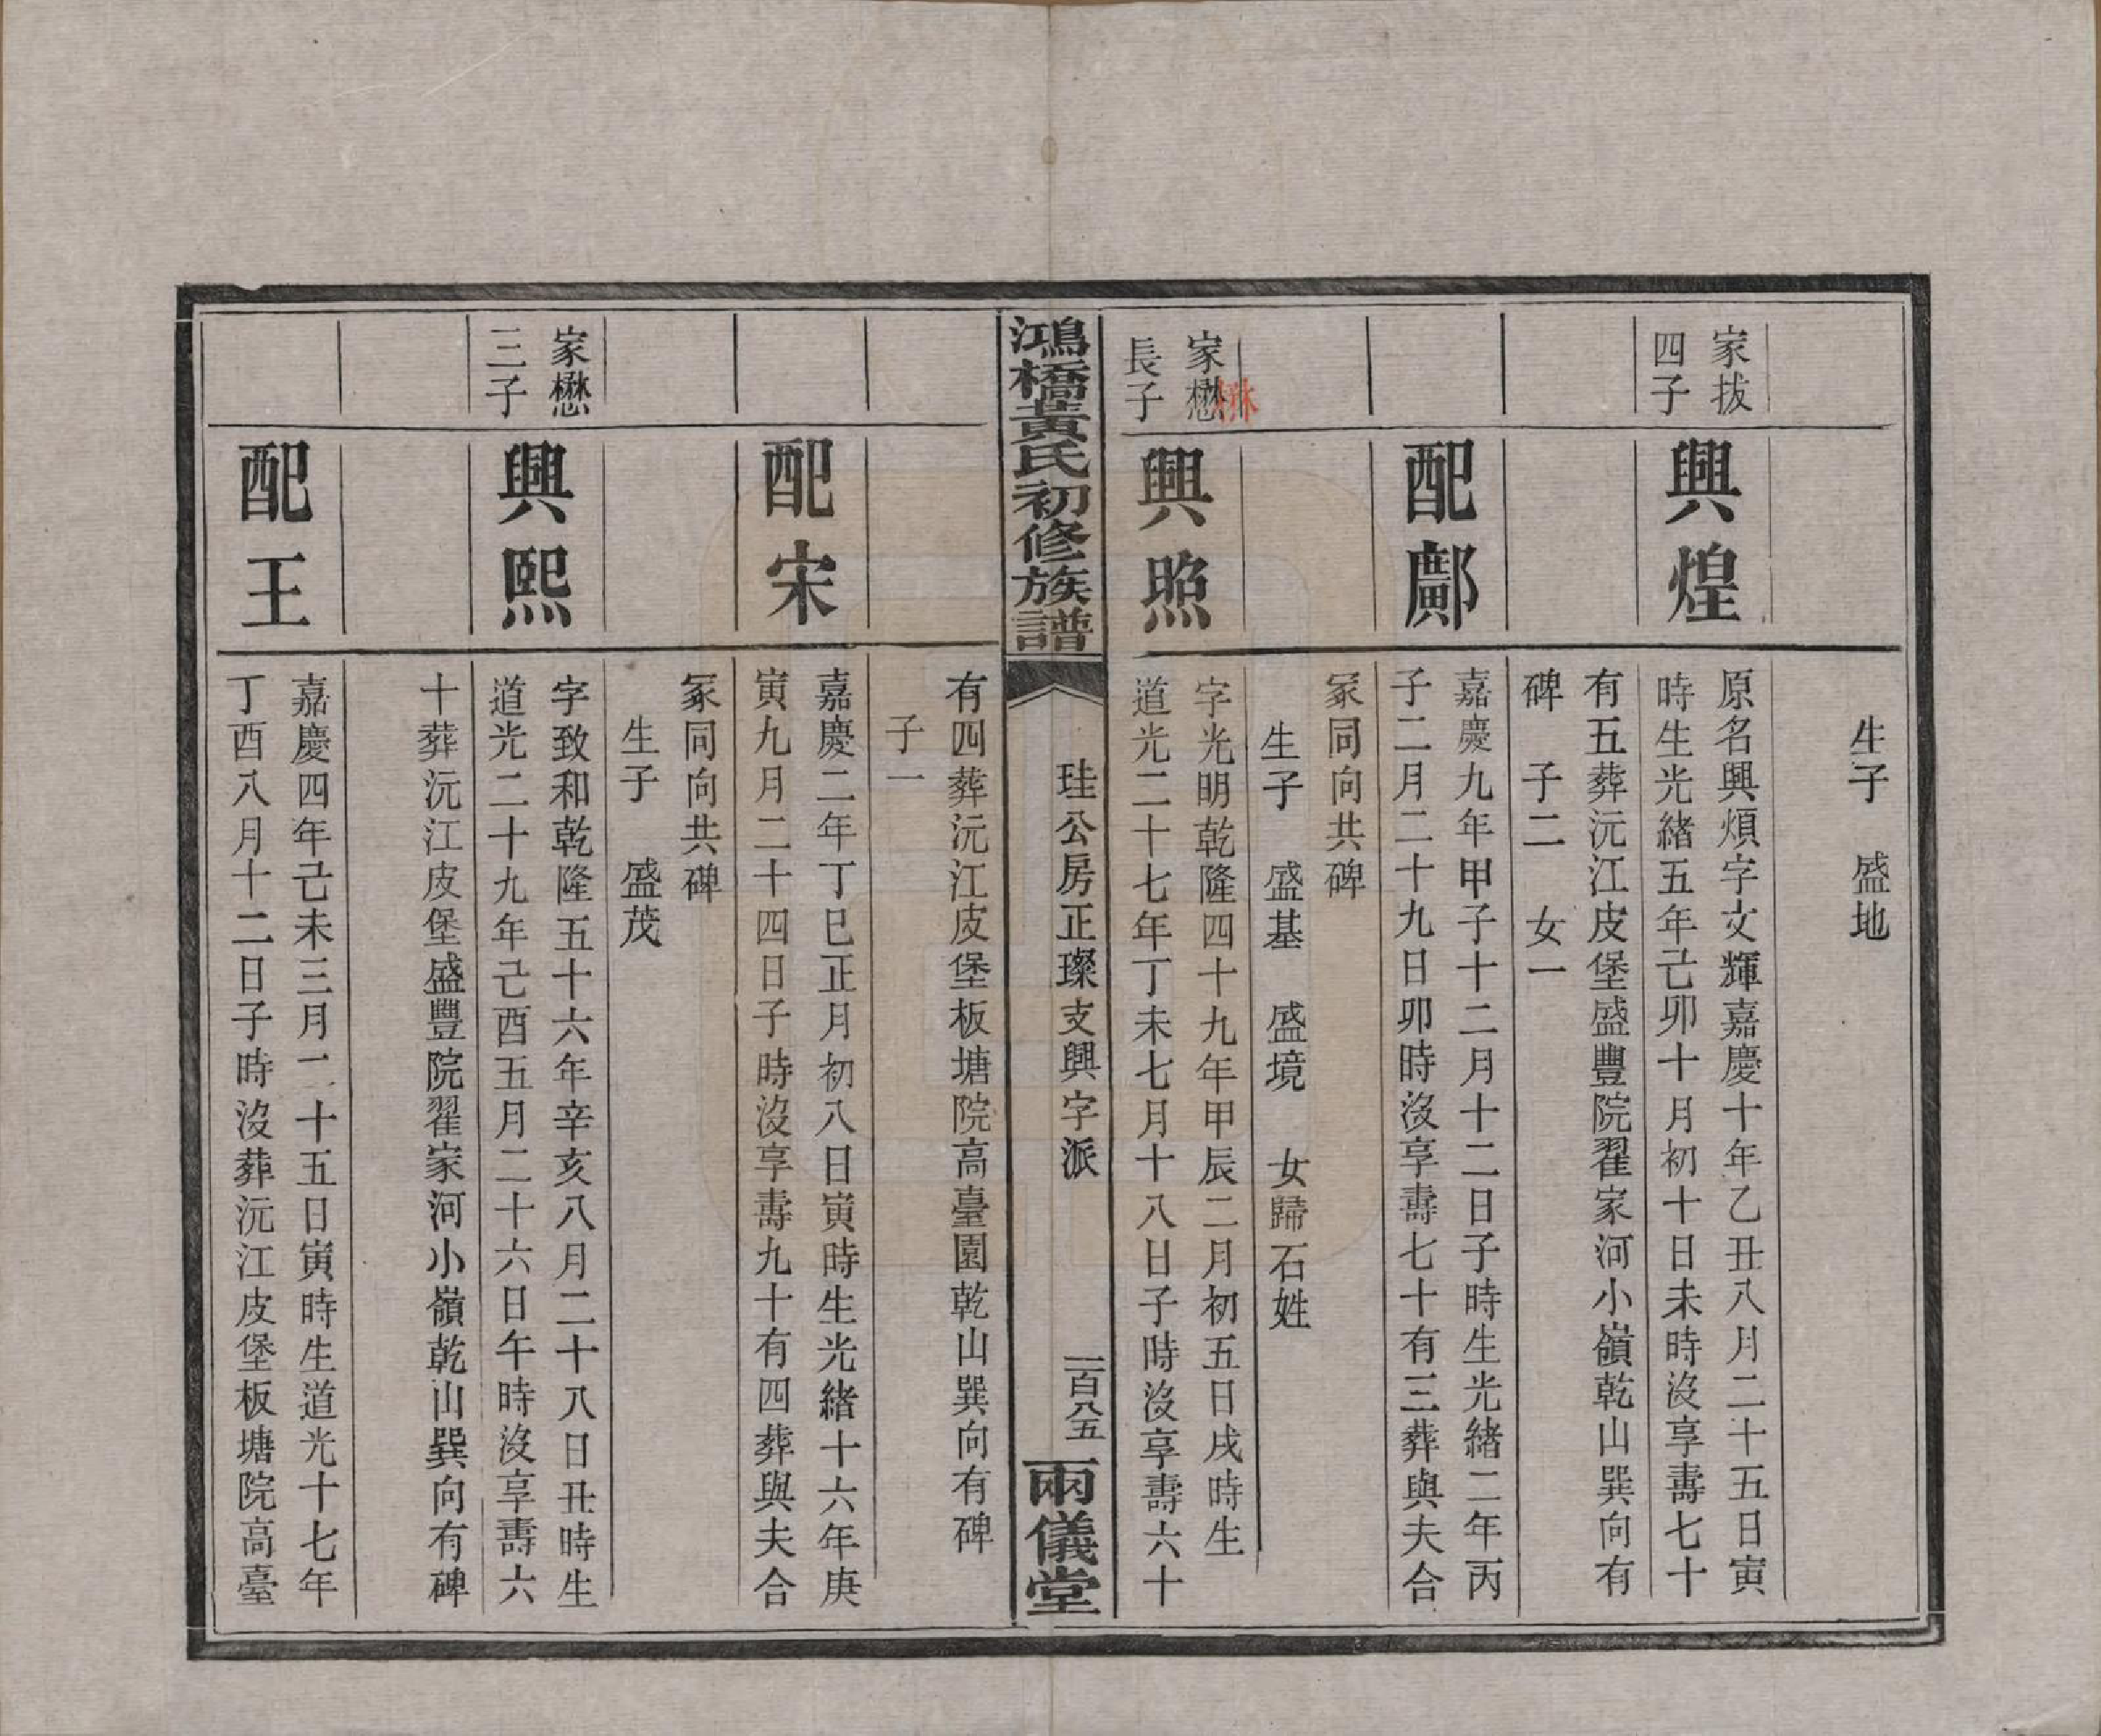 生子　盛地
家拔
四子
興煌
原名興煩字文輝嘉慶十年乙丑八月二十五日寅
時生光緒五年己卯十月初十日未時沒享壽七十
有五葬沅江皮堡盛豐院翟家河小嶺乾山巽向有
碑　子二　女一
配鄺
嘉慶九年甲子十二月十二日子時生光緒二年丙
子二月二十九日卯時沒享壽七十有三葬與夫合
冢同向共碑
生子　盛基　盛境　女歸石姓
家懋
長子
興照
字光明乾隆四十九年甲辰二月初五日戌時生
道光二十七年丁未七月十八日子時沒享壽六十
鴻橋黃氏初修族譜
珪公房正璨支興字派
一百八五
兩儀堂
有四葬沅江皮堡板塘院高臺園乾山巽向有碑
子一
配宋
嘉慶二年丁巳正月初八日寅時生光緒十六年庚
寅九月二十四日子時沒享壽九十有四葬與夫合
冢同向共碑
生子　盛茂
家懋
三子
興熙
字致和乾隆五十六年辛亥八月二十八日丑時生
道光二十九年己酉五月二十六日午時沒享壽六
十葬沅江皮堡盛豐院翟家河小嶺乾山巽向有碑
配王
嘉慶四年己未三月二十五日寅時生道光十七年
丁酉八月十二日子時沒葬沅江皮堡板塘院高臺